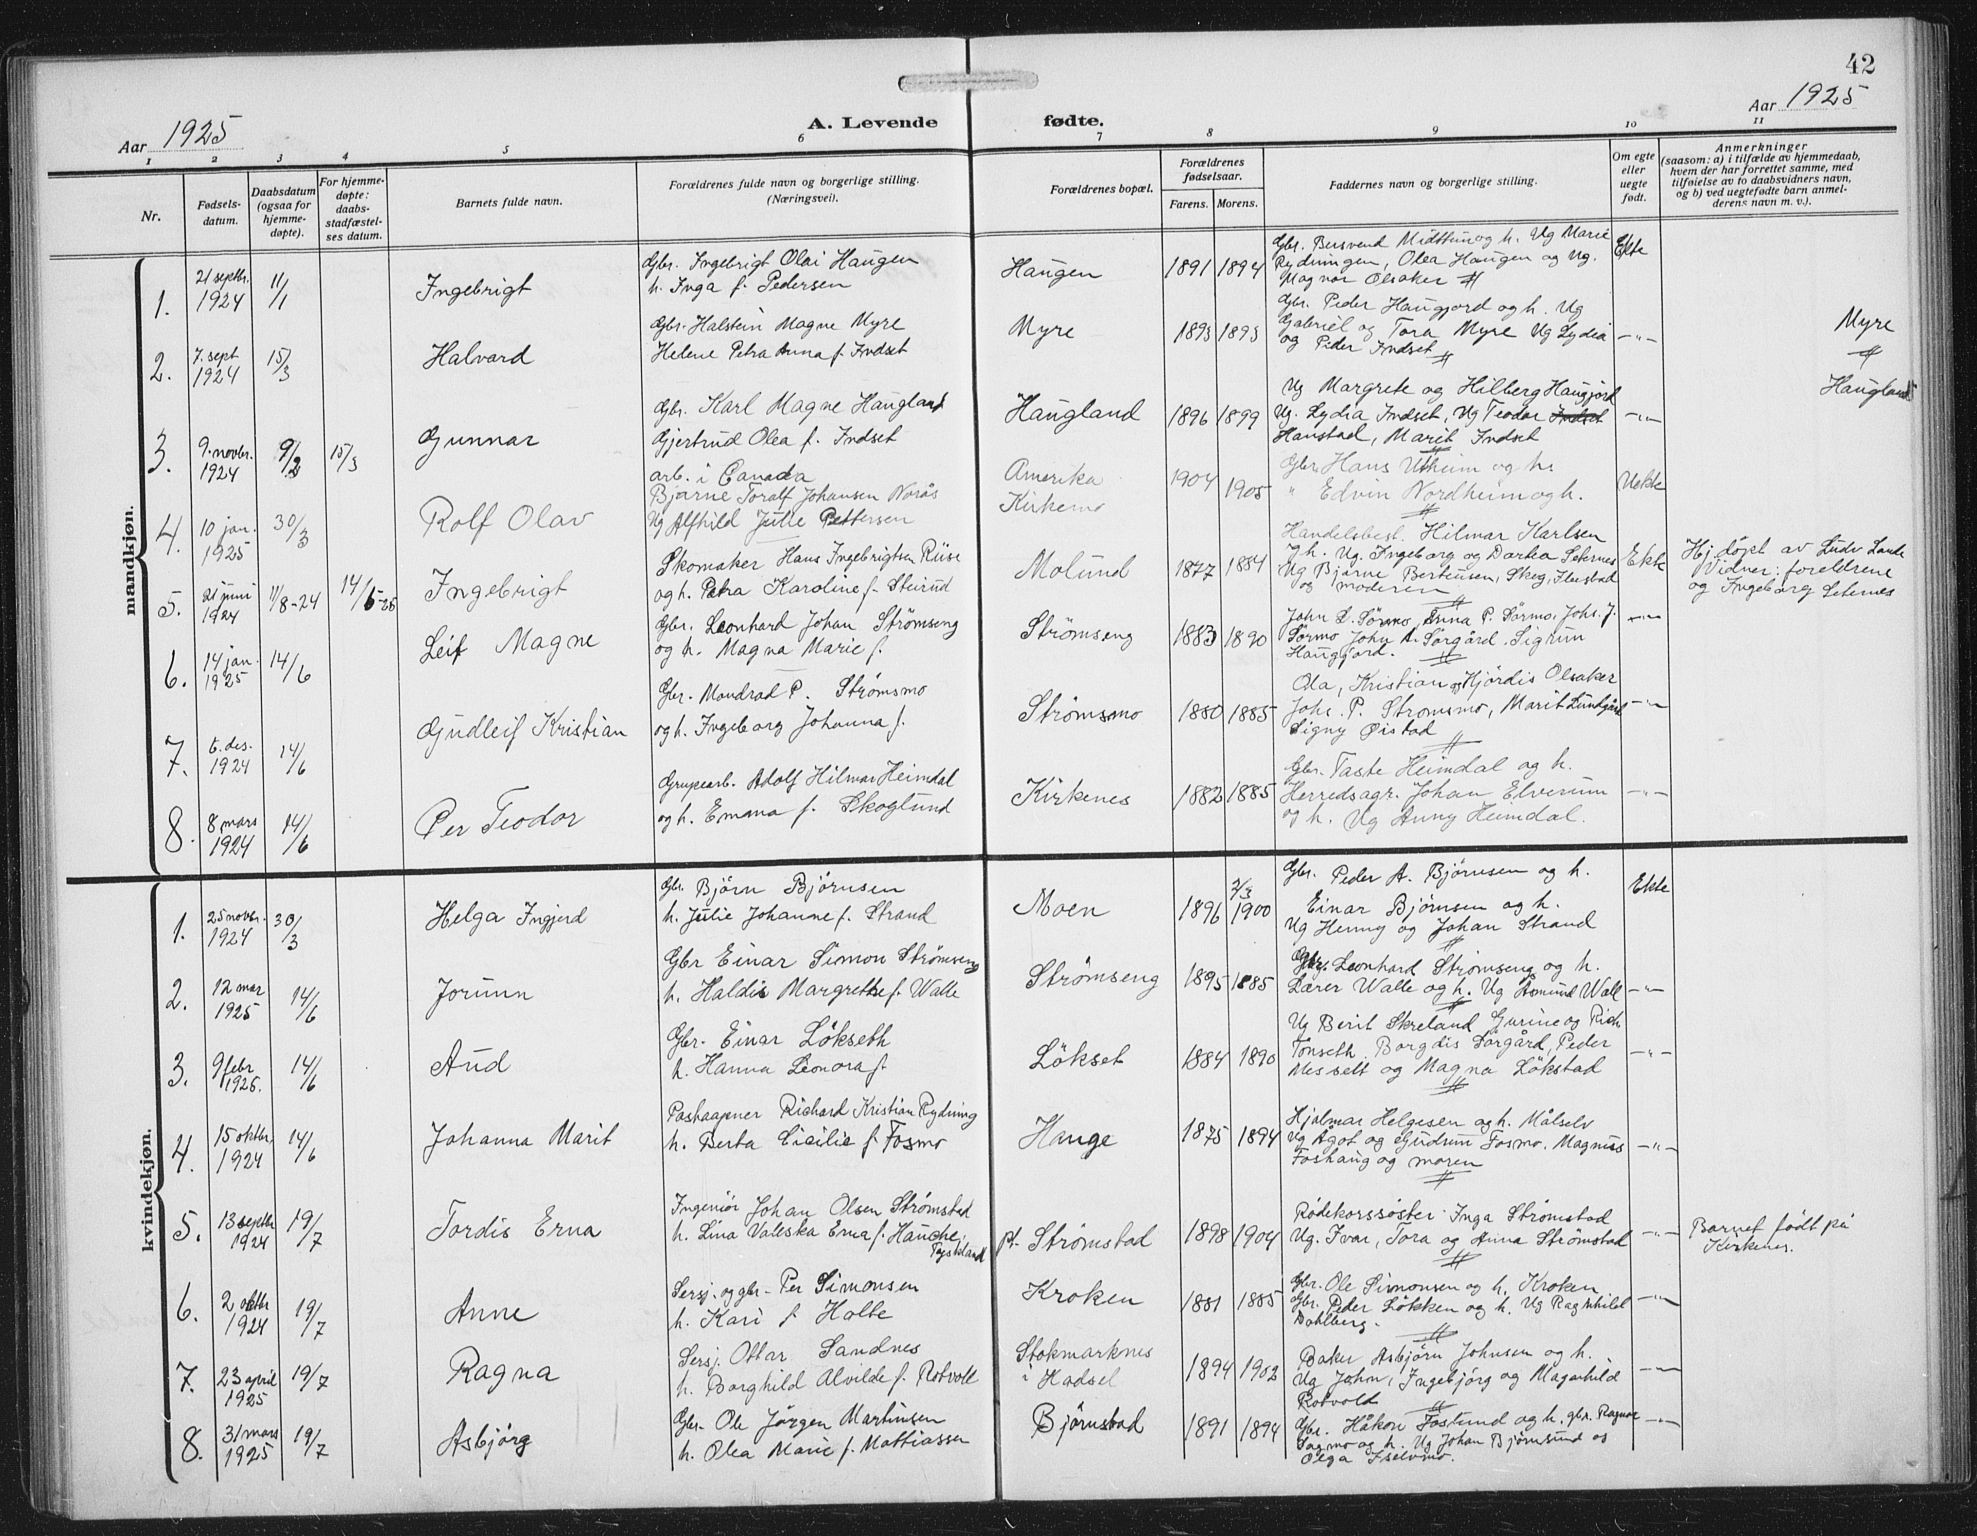 42
Aar 1925
A. Levende fødte.
Aar 1925
1 2 3 4 5 6 7 8 9 10 11
Nr.
Fødsels-
datum.
Daabsdatum
(ogsaa for
hjemme-
døpte).
For hjemme-
døpte:
daabs-
stadfæstel-
ses datum.
Barnets fulde navn.
Forældrenes fulde navn og borgerlige stilling.
(Næringsvei).
Forældrenes bopæl.
Forældrenes
fødselsaar.
Farens. Morens.
Faddernes navn og borgerlige stilling.
Om egte
eller
uegte
født.
Anmerkninger
(saasom: a) i tilfælde av hjemmedaab,
hvem der har forrettet samme, med
tilføielse av to daabsvidners navn,
og b) ved uegtefødte barn anmel-
derens navn m. v.).
mandkjøn.
1. 21 septbr. 1924 11/1 Ingebrigt
Gbr. Ingebrigt Olai Haugen
h. Inga f. Pedersen
Haugen 1891 1894
Gbr. Bersvend Midttun og h. Ug Marie
Rydningen, Olea Haugen og Ug.
Magnor Olsaker
Ekte
2. 7. sept 1924 15/3 Halvard
Gbr. Halstein Magne Myre
Helene Petra Anna f. Indset
Myre 1893 1893
Gbr. Peder Haugjord og h. Ug
Gabriel og Tora Myre Ug Lydia
og Peder Indset
-"-
Myre
3. 9. novbr. 1924 9/2 15/3 Gunnar
Gbr. Karl Magne Haugland
Gjertrud Olea f. Indset
Haugland 1896 1899
Ug Margrete og Hilberg Haugjord
Ug. Lydia Indset, Ug Teodor Indset
Hanstad, Marit Indset
-"-
Haugland
4. 10 jan. 1925 30/3 Rolf Olav
arb. i Canada
Bjarne Toralf Johansen Norås
Ug Alfhild Julie Pettersen
Amerika
Kirkemo
1904 1905
Gbr. Hans Utheim og h.
" Edvin Nordheim og h.
Uekte
5. 21 juni 1924 11/8-24 14/6-25 Ingebrigt
Skomaker Hans Ingebrigtsen Riise
og h. Petra Karoline f. Steirud
Molund 1877 1884
Handelsbest. Hilmar Karlsen
og h. Ug. Ingeborg og Dortea Seternes
Ug Bjarne Berteusen, Skog,
og moderen
Ekte
Hj. døpt av Ludv Lande
Vidner: foreldrene
og Ingeborg Seternes
6. 14 jan. 1925 14/6 Leif Magne
Gbr. Leonhard Johan Strømseng
og h. Magna Marie f.
Strømseng 1883 1890
John L. Sörmo, P. Sörmo, Johs. J.
Sørmo John A. Sørgård. Sigrun
Haugjord.
-"-
7. 6. des. 1924 14/6 Gudleif Kristian
Gbr. Mondrad P. Strømsmo
og h. Ingeborg Johanna f.
Strømsmo 1880 1885
Ola, Kristian og Hjördis Olsaker
Johs. P. Strømsmo, Marit Lundgård
Signy Øistad
-"-
8. 8 mars 1924 14/6 Per Teodor
Grupearb. Adolf Hilmar Heimdal
og h. Emma f. Skoglund
Kirkenes 1882 1885
Gbr. Taste Heimdal og h.
Herredsagr. Johan Elverum
og h. Ug Anny Heimdal.
-"-
kvindekjøn.
1. 25 novbr. 1924 30/3 Helga Ingjerd
Gbr. Bjørn Bjørnsen
h. Julie Johanne f. Strand
Moen 1896 2/3 1900
Gbr. Peder A. Bjørnsen og h.
Einar Bjørnsen og h.
Ug Henny og Johan Strand
Ekte
2. 12 mar 1925 14/6 Jorunn
Gbr Einar Simon Strømseng
h. Haldis Margrethe f. Walle
Strømseng 1895 1885
Gbr. Leonhard Strømseng og h.
Lærer Walle og h. Ug Asmund Wall
-"-
3. 9 febr 1925. 14/6 Aud
Gbr. Einar Lökseth
h. Hanna Leonora f.
Lökset 1884 1890
Ug Berit Skreland Gurine og Rich.
Tonseth Borgdis Sørgård, Peder
Messelt og Magna Lökstad
-"-
4. 15 oktbr. 1924 14/6 Johanna Marit
Postaapner Richard Kristian Rydning
h. Berta Cicilie f. Fosmo
Hauge 1875 1894
Hjalmar Helgesen og h. Målselv
Ug Agot og Gudrun Fosmo. Magnus
Foshaug og moren
-"-
5. 13 septbr 1924 19/7 Tordis Erna
Ingeniør Johan Olsen Strømstad
h. Lina Valeska Erna f. Hauche,
Tyskland
pt. Strømstad 1898 1904
Rødekorssøster Inga Strømstad
Ug. Ivar, Tora og Anna Strømstad
-"-
Barnet født på
Kirkenes.
6. 2 oktbr 1924 19/7 Anne
Sersj. og gbr. Per Simonsen
h. Kari f. Holte
Kroken 1881 1885
Gbr. Ole Simonsen og h. Kroken
Gbr. Peder Løkken og h. Ug Ragnhild
Dahlberg.
-"-
7. 23 april 1925 19/7 Ragna
Sersj. Ottar Sandnes
h. Borghild Alvilde f. Rotvoll
Stokmarknes
i Hadsel
1894 1902
Baker Asbjørn Johnsen og h.
Ug John, Ingebjørg og Magnhild
Rotvold
-"-
8. 31 mars 1925 19/7 Asbjørg
Gbr. Ole Jørgen Martinsen
h. Olea Marie f. Mattiassen
Bjørnstad 1891 1894
Gbr. Håkon Foslund og h. gbr. Ragnar
Sagmo og h. Ug Johan Bjørnsund og
Olga Iselvmo.
-"-